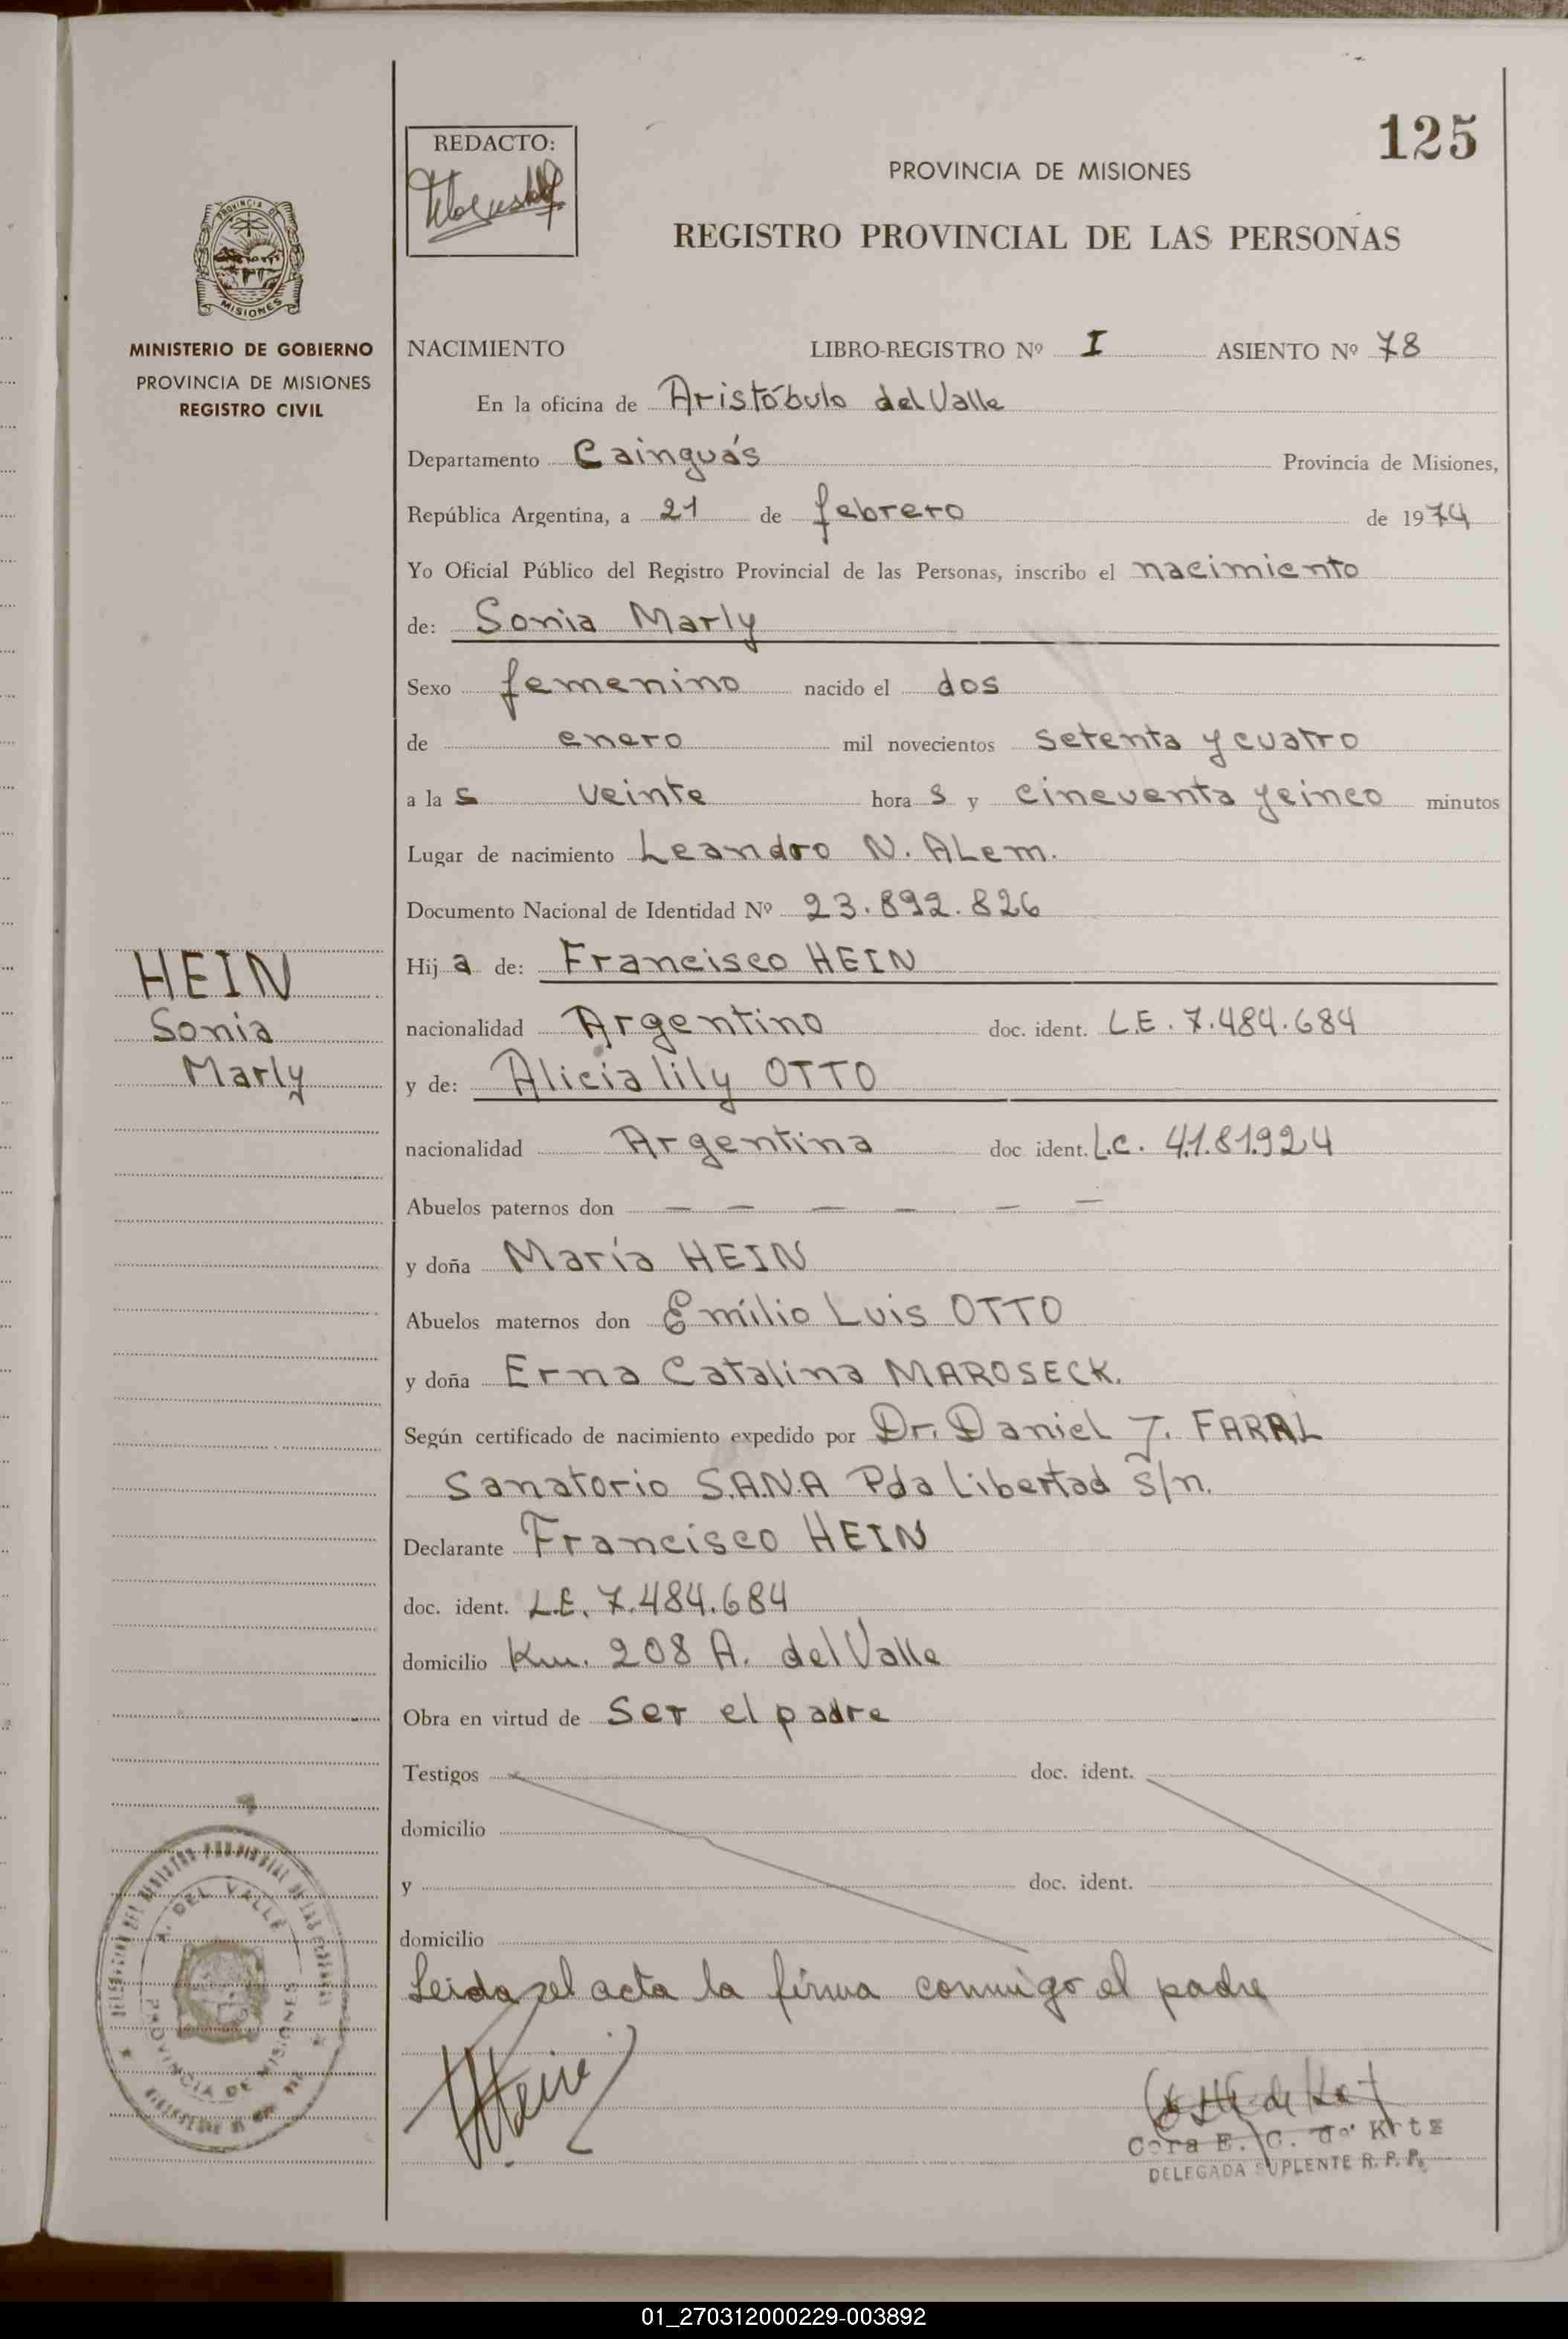 125
REDACTO:
PROVINCIA DE MISIONES
REGISTRO PROVINCIAL DE LAS PERSONAS
PROVINCIA DE
MISIONES
MINISTERIO DE GOBIERNO
PROVINCIA DE MISIONES
REGISTRO CIVIL
NACIMIENTO LIBRO-REGISTRO Nº I ASIENTO Nº 78
En la oficina de Aristóbulo del Valle
Departamento Cainguás Provincia de Misiones,
República Argentina, a 21 de febrero de 1974
Yo Oficial Público del Registro Provincial de las Personas, inscribo el nacimiento
de: Sonia Marly
Sexo femenino nacido el dos
de enero mil novecientos setenta y cuatro
a la s veinte hora s y cincuenta y cinco minutos
Lugar de nacimiento Leandro N. ALem.
Documento Nacional de Identidad Nº 23.892.826
HEIN
Sonia
Marly
Hij a de: Francisco HEIN
nacionalidad Argentino doc. ident. L.E. 7.484.684
y de: Alicia lily OTTO
nacionalidad Argentina doc ident. L.C. 4.181.924
Abuelos paternos don — — — — — —
y doña María HEIN
Abuelos maternos don Emilio Luis OTTO
y doña Erna Catalina MAROSECK.
Según certificado de nacimiento expedido por Dr. Daniel J. FARAL
Sanatorio S.A.N.A Pda Libertad s/n.
Declarante Francisco HEIN
doc. ident. L.E. 7.484.684
domicilio Km. 208 A. del Valle
Obra en virtud de ser el padre
Testigos doc. ident.
domicilio
y doc. ident.
domicilio
Leida el acta la firma conmigo el padre
A. DEL VALLE
PROVINCIA DE MISIONES
Hein
Cora E. C. de Krtz
DELEGADA SUPLENTE R. P. P.
01_270312000229-003892